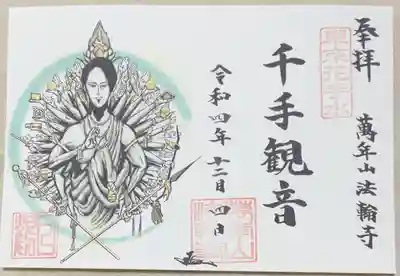 奉拝
萬年山法輪寺
千手観音
令和四年十二月四日